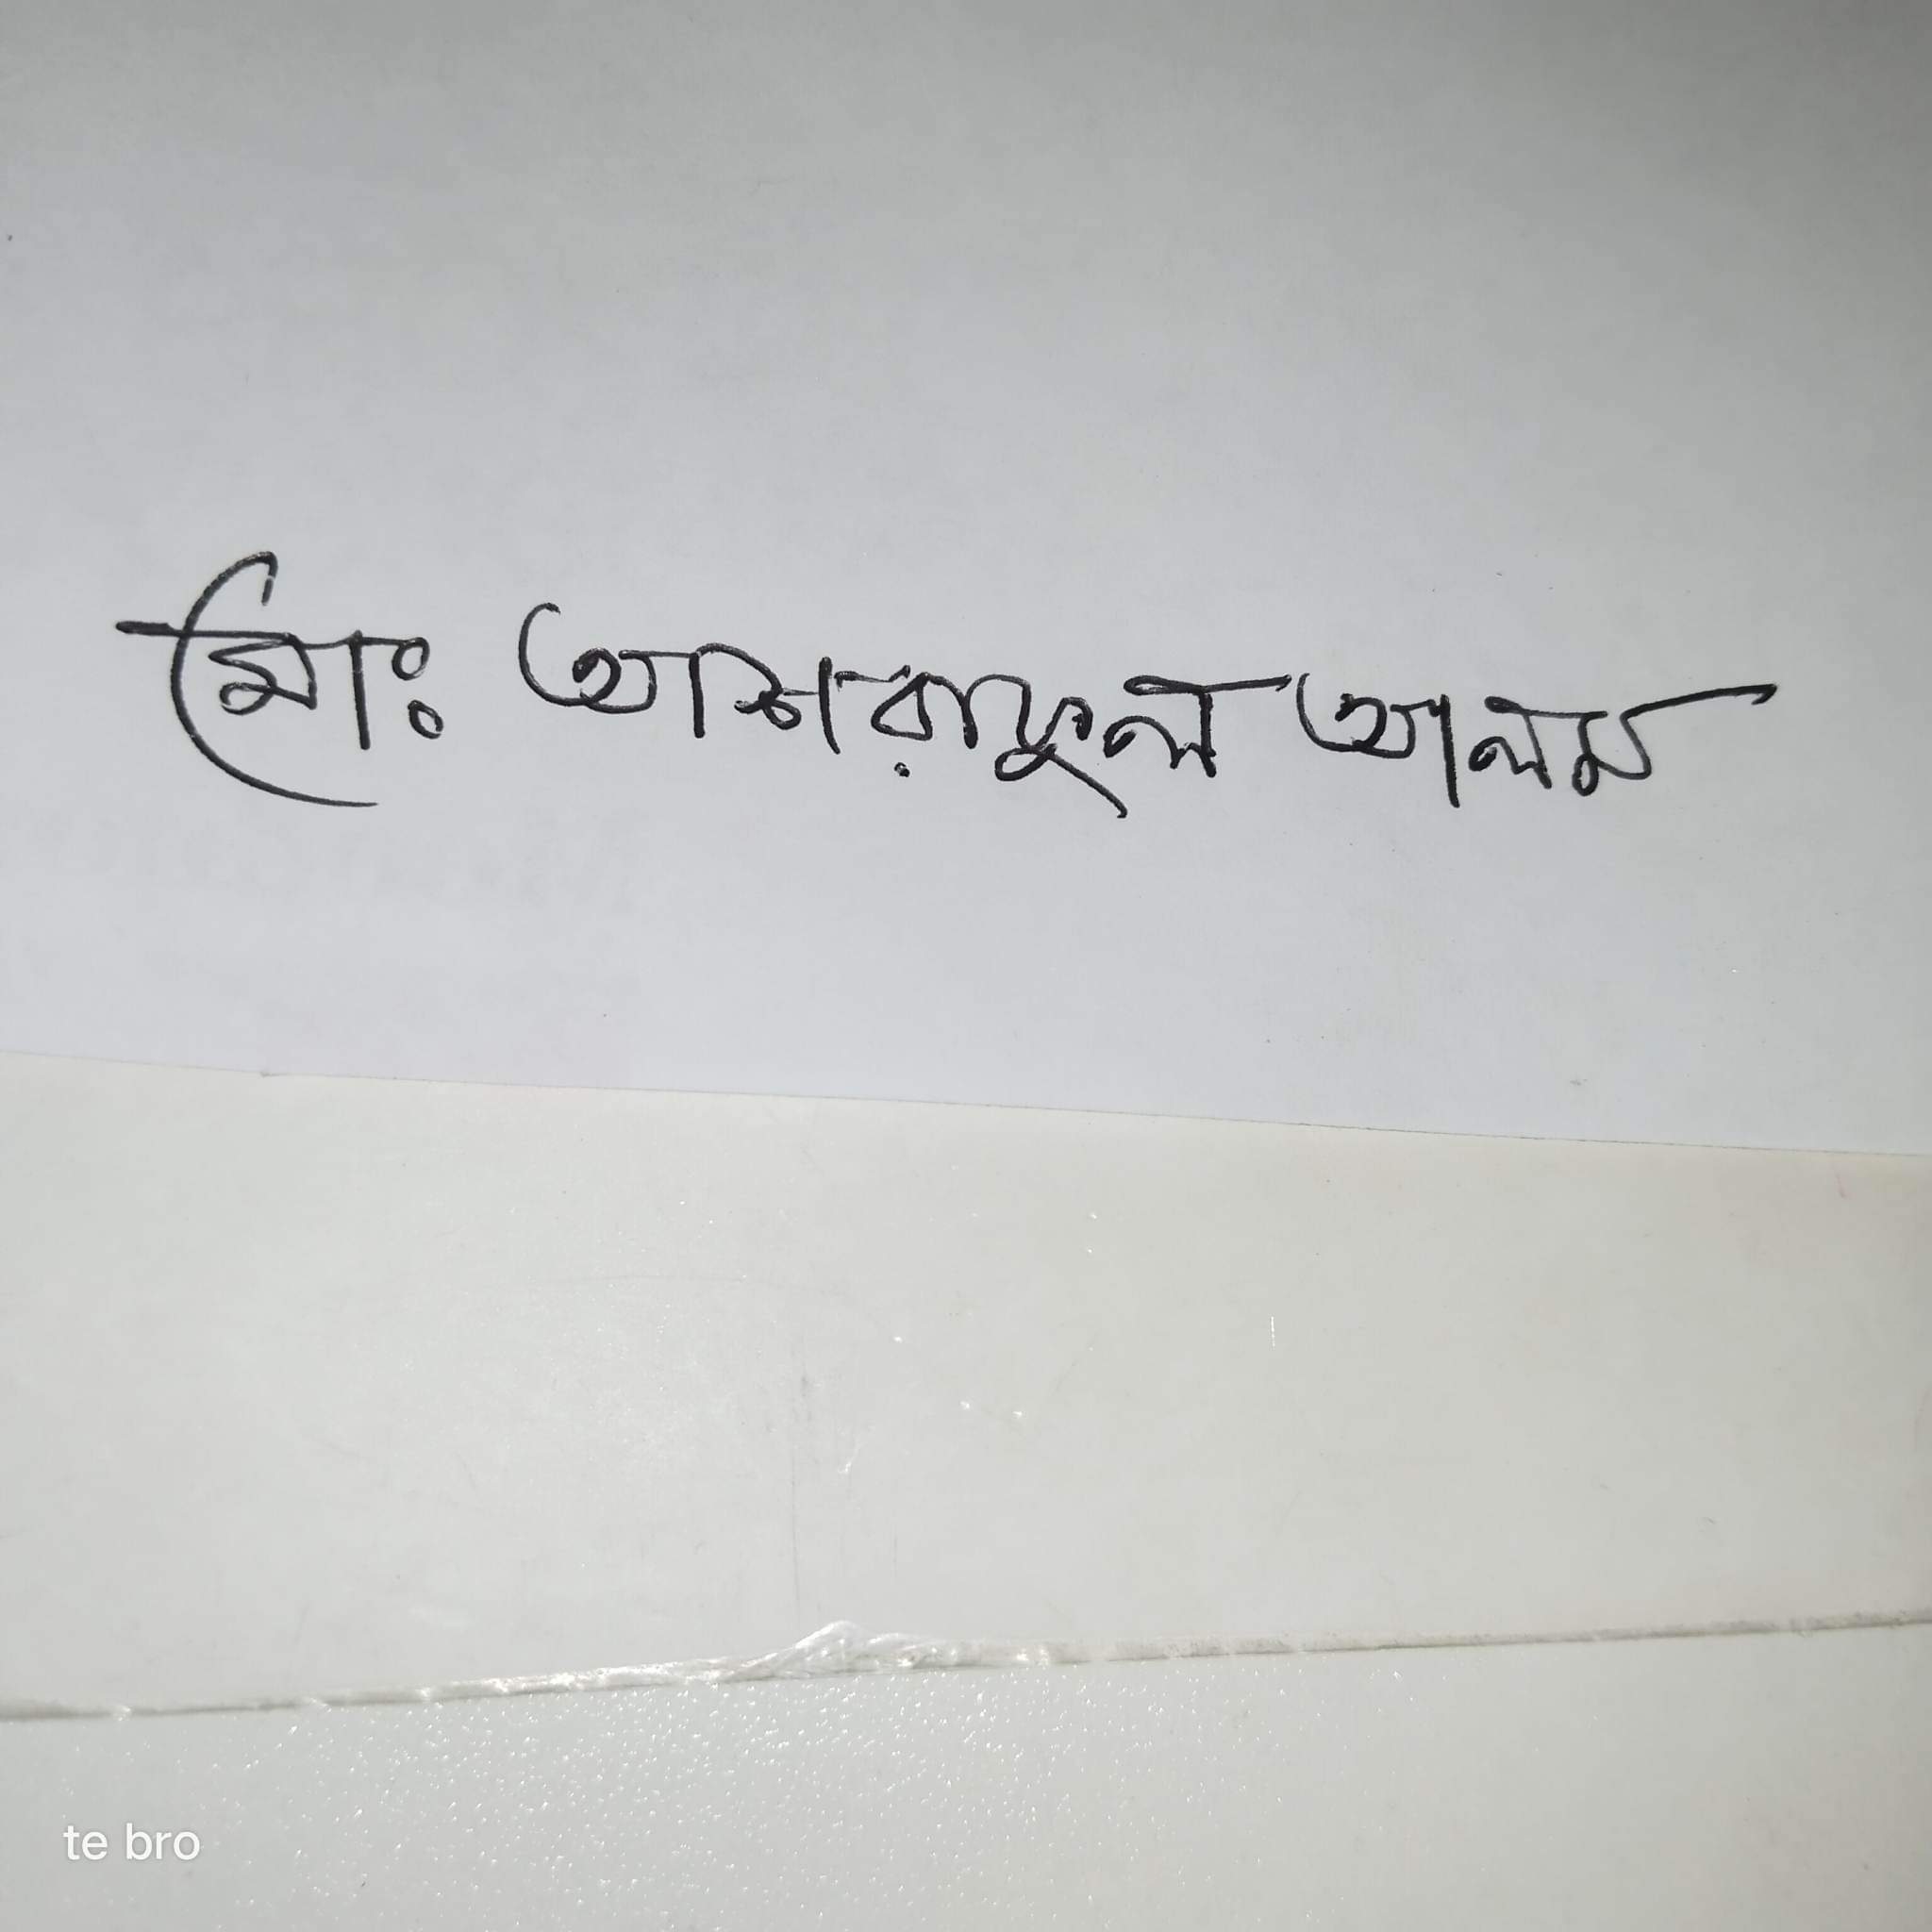 মোঃ আশরাফুল আলম
te bro